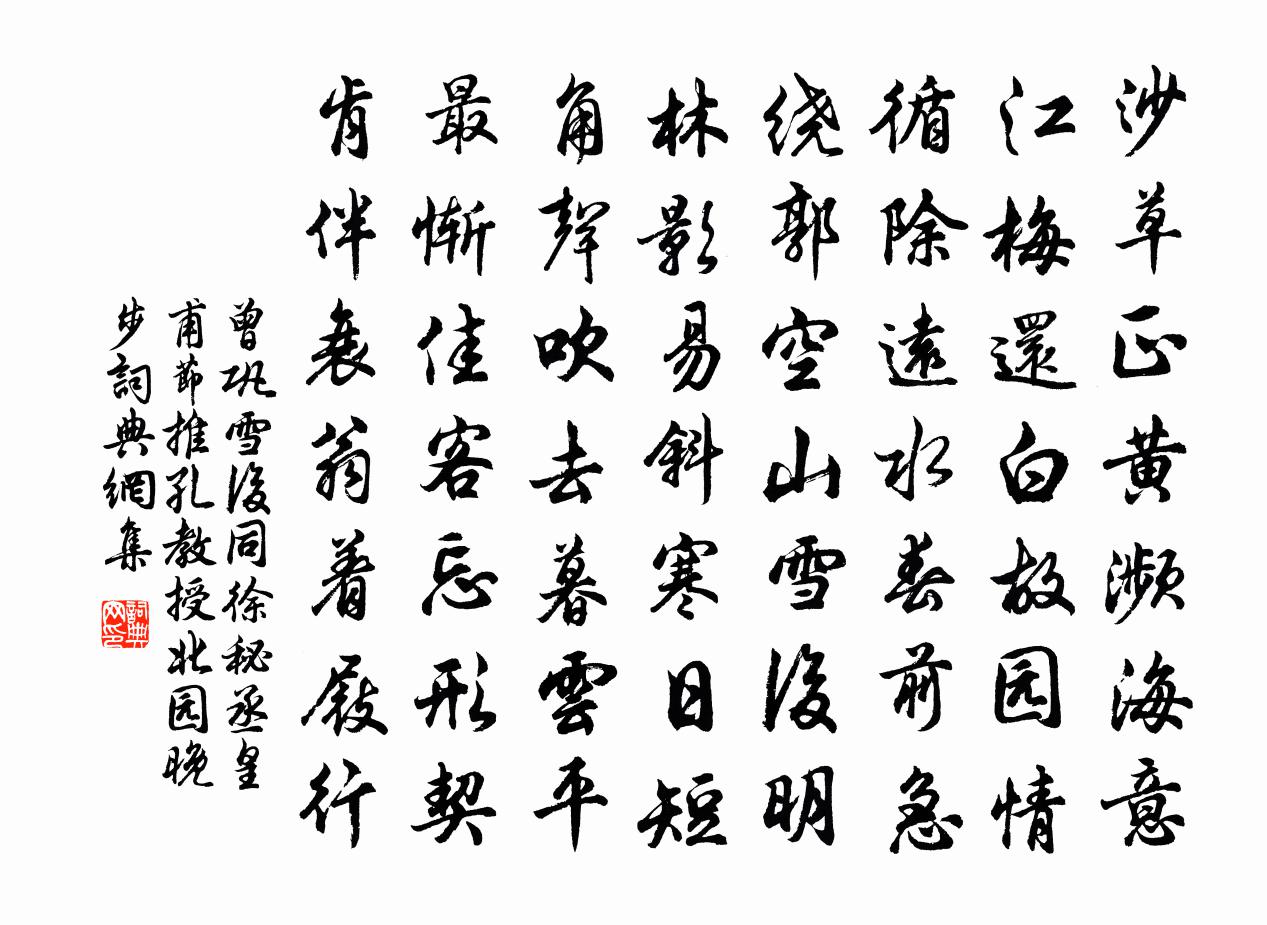 沙草正黄濒海意
江梅還白故园情
循除遠水春前急
绕郭空山雪後明
林影易斜寒日短
角聲吹去暮雲平
最慚佳客忘形契
肯伴衰翁着屐行
曾巩雪後同徐秘丞皇
甫節推孔教授北园晚
步詞典網集
詞典网印